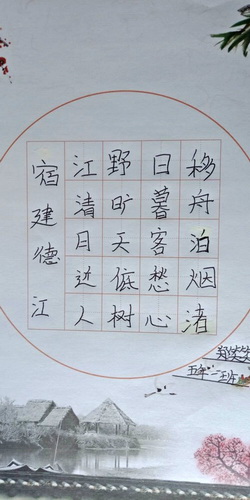 移舟泊烟渚
日暮客愁心
野旷天低树
江清月边人
宿建德江
五年二班